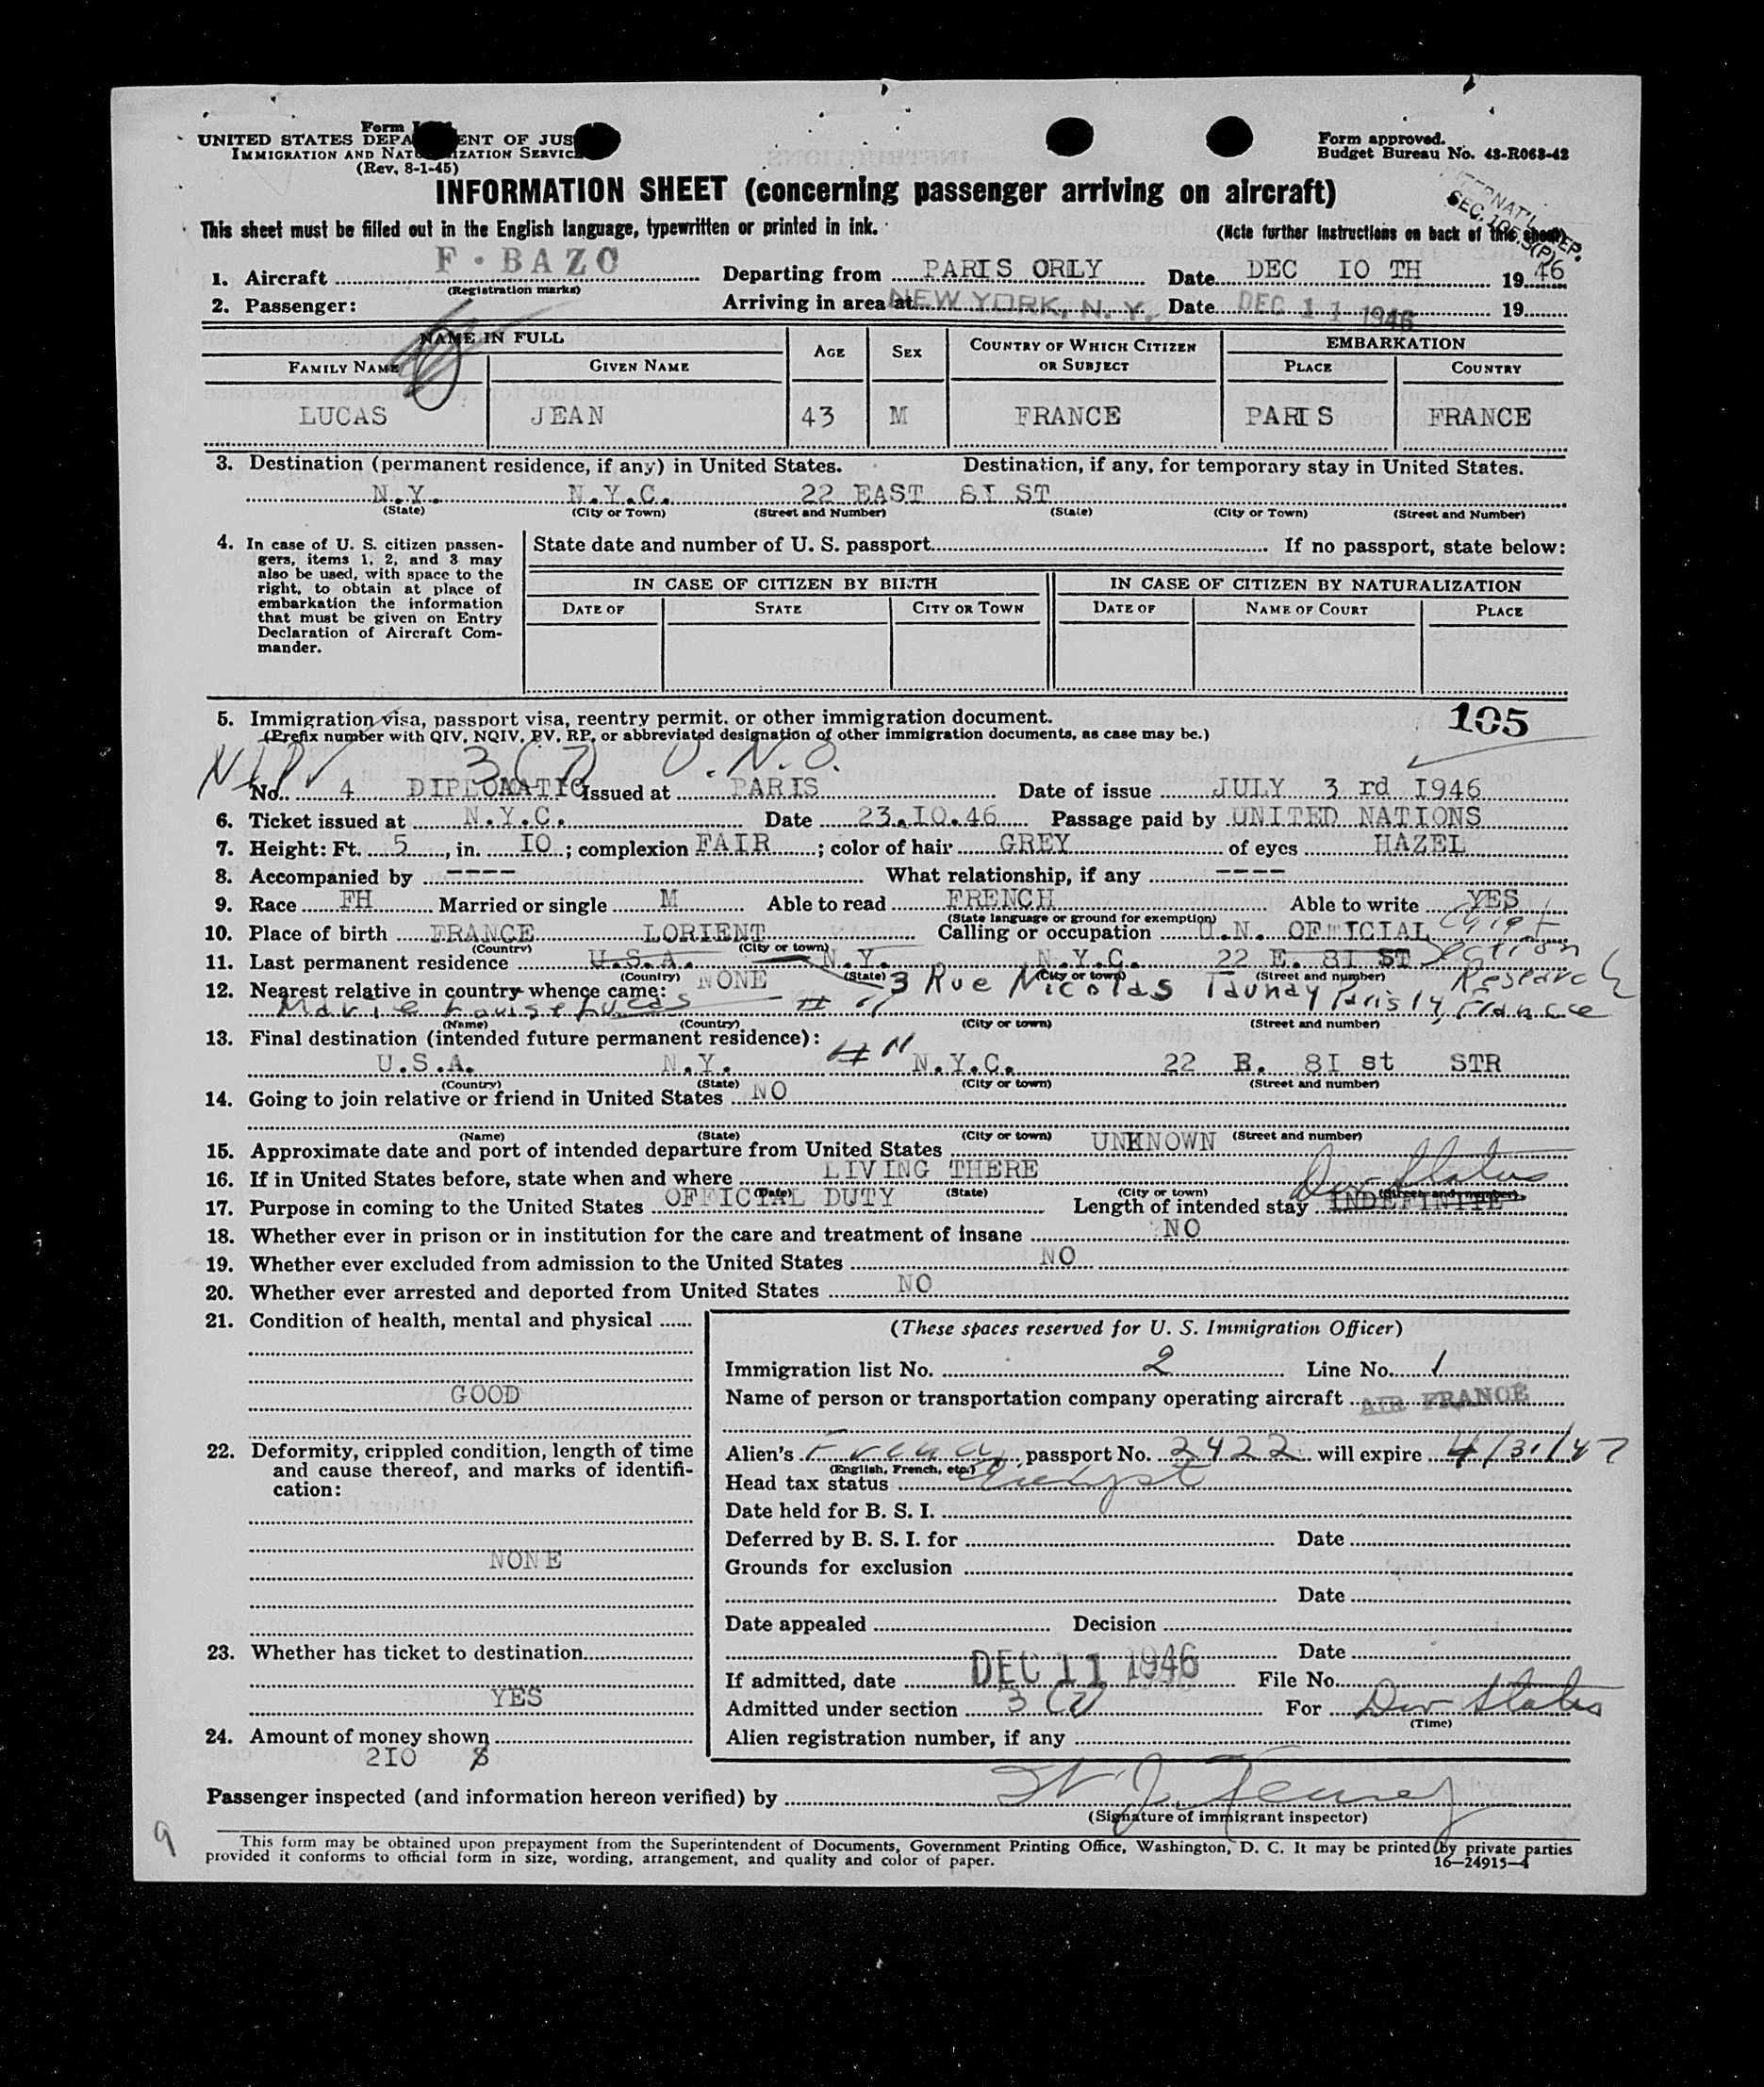 Form
UNITED STATES DEPA ENT OF JUS
IMMIGRATION AND NAT IZATION SERVIC
(Rev. 8-1-45)
Form approved.
Budget Bureau No. 43-R063-42
INFORMATION SHEET (concerning passenger arriving on aircraft)
SEC. 105.3(P)
This sheet must be filled out in the English language, typewritten or printed in ink. (Note further instructions on back of this sheet)
1. Aircraft F·BAZO Departing from PARIS ORLY Date DEC IO TH 1946
(Registration marks)
2. Passenger: Arriving in area at NEW YORK, N. Y. Date DEC 11 1946 19
NAME IN FULL AGE SEX COUNTRY OF WHICH CITIZEN OR SUBJECT EMBARKATION
FAMILY NAME GIVEN NAME PLACE COUNTRY
LUCAS JEAN 43 M FRANCE PARIS FRANCE
3. Destination (permanent residence, if any) in United States. Destination, if any, for temporary stay in United States.
N.Y. N.Y.C. 22 EAST 8I ST
(State) (City or Town) (Street and Number) (State) (City or Town) (Street and Number)
4. In case of U. S. citizen passen-
gers, items 1, 2, and 3 may
also be used, with space to the
right, to obtain at place of
embarkation the information
that must be given on Entry
Declaration of Aircraft Com-
mander.
State date and number of U. S. passport If no passport, state below:
IN CASE OF CITIZEN BY BIRTH IN CASE OF CITIZEN BY NATURALIZATION
DATE OF STATE CITY OR TOWN DATE OF NAME OF COURT PLACE
5. Immigration visa, passport visa, reentry permit, or other immigration document. 105
(Prefix number with QIV, NQIV, PV, RP, or abbreviated designation of other immigration documents, as case may be.)
3(7) U.N.O.
No. 4 DIPLOMATIC Issued at PARIS Date of issue JULY 3 rd I946
6. Ticket issued at N.Y.C. Date 23.IO.46 Passage paid by UNITED NATIONS
7. Height: Ft. 5, in. IO; complexion FAIR; color of hair GREY of eyes HAZEL
8. Accompanied by ---- What relationship, if any ----
9. Race FH Married or single M Able to read FRENCH Able to write YES
(State language or ground for exemption)
10. Place of birth FRANCE LORIENT Calling or occupation U.N. OFFICIAL
(Country) (City or town)
Section
11. Last permanent residence U.S.A. N.Y. N.Y.C. 22 E. 8I ST
(Country) (State) (City or town) (Street and number)
Research
12. Nearest relative in country whence came: NONE 3 Rue Nicolas Taunay Paris 14, France
Marie Louise Lucas
(Name) (Country) (City or town) (Street and number)
13. Final destination (intended future permanent residence):
U.S.A. N.Y. N.Y.C. 22 E. 8I st STR
(Country) (State) (City or town) (Street and number)
14. Going to join relative or friend in United States NO
(Name) (State) (City or town) (Street and number)
15. Approximate date and port of intended departure from United States UNKNOWN
16. If in United States before, state when and where LIVING THERE
(Date) (State) (City or town) (Street and number)
Dur Status
17. Purpose in coming to the United States OFFICIAL DUTY Length of intended stay INDEFINITE
18. Whether ever in prison or in institution for the care and treatment of insane NO
19. Whether ever excluded from admission to the United States NO
20. Whether ever arrested and deported from United States NO
21. Condition of health, mental and physical
GOOD
22. Deformity, crippled condition, length of time
and cause thereof, and marks of identifi-
cation:
NONE
23. Whether has ticket to destination
YES
24. Amount of money shown
2IO $
(These spaces reserved for U. S. Immigration Officer)
Immigration list No. 2 Line No. 1
Name of person or transportation company operating aircraft AIR FRANCE
Alien's French, passport No. 2422 will expire 4/3/47
(English, French, etc.)
Head tax status
Date held for B. S. I.
Deferred by B. S. I. for Date
Grounds for exclusion
Date
Date appealed Decision
Date
If admitted, date DEC 11 1946 File No.
Admitted under section 3(7) For Dur Status
(Time)
Alien registration number, if any
Passenger inspected (and information hereon verified) by
(Signature of immigrant inspector)
9
This form may be obtained upon prepayment from the Superintendent of Documents, Government Printing Office, Washington, D. C. It may be printed by private parties
provided it conforms to official form in size, wording, arrangement, and quality and color of paper. 16—24915-4